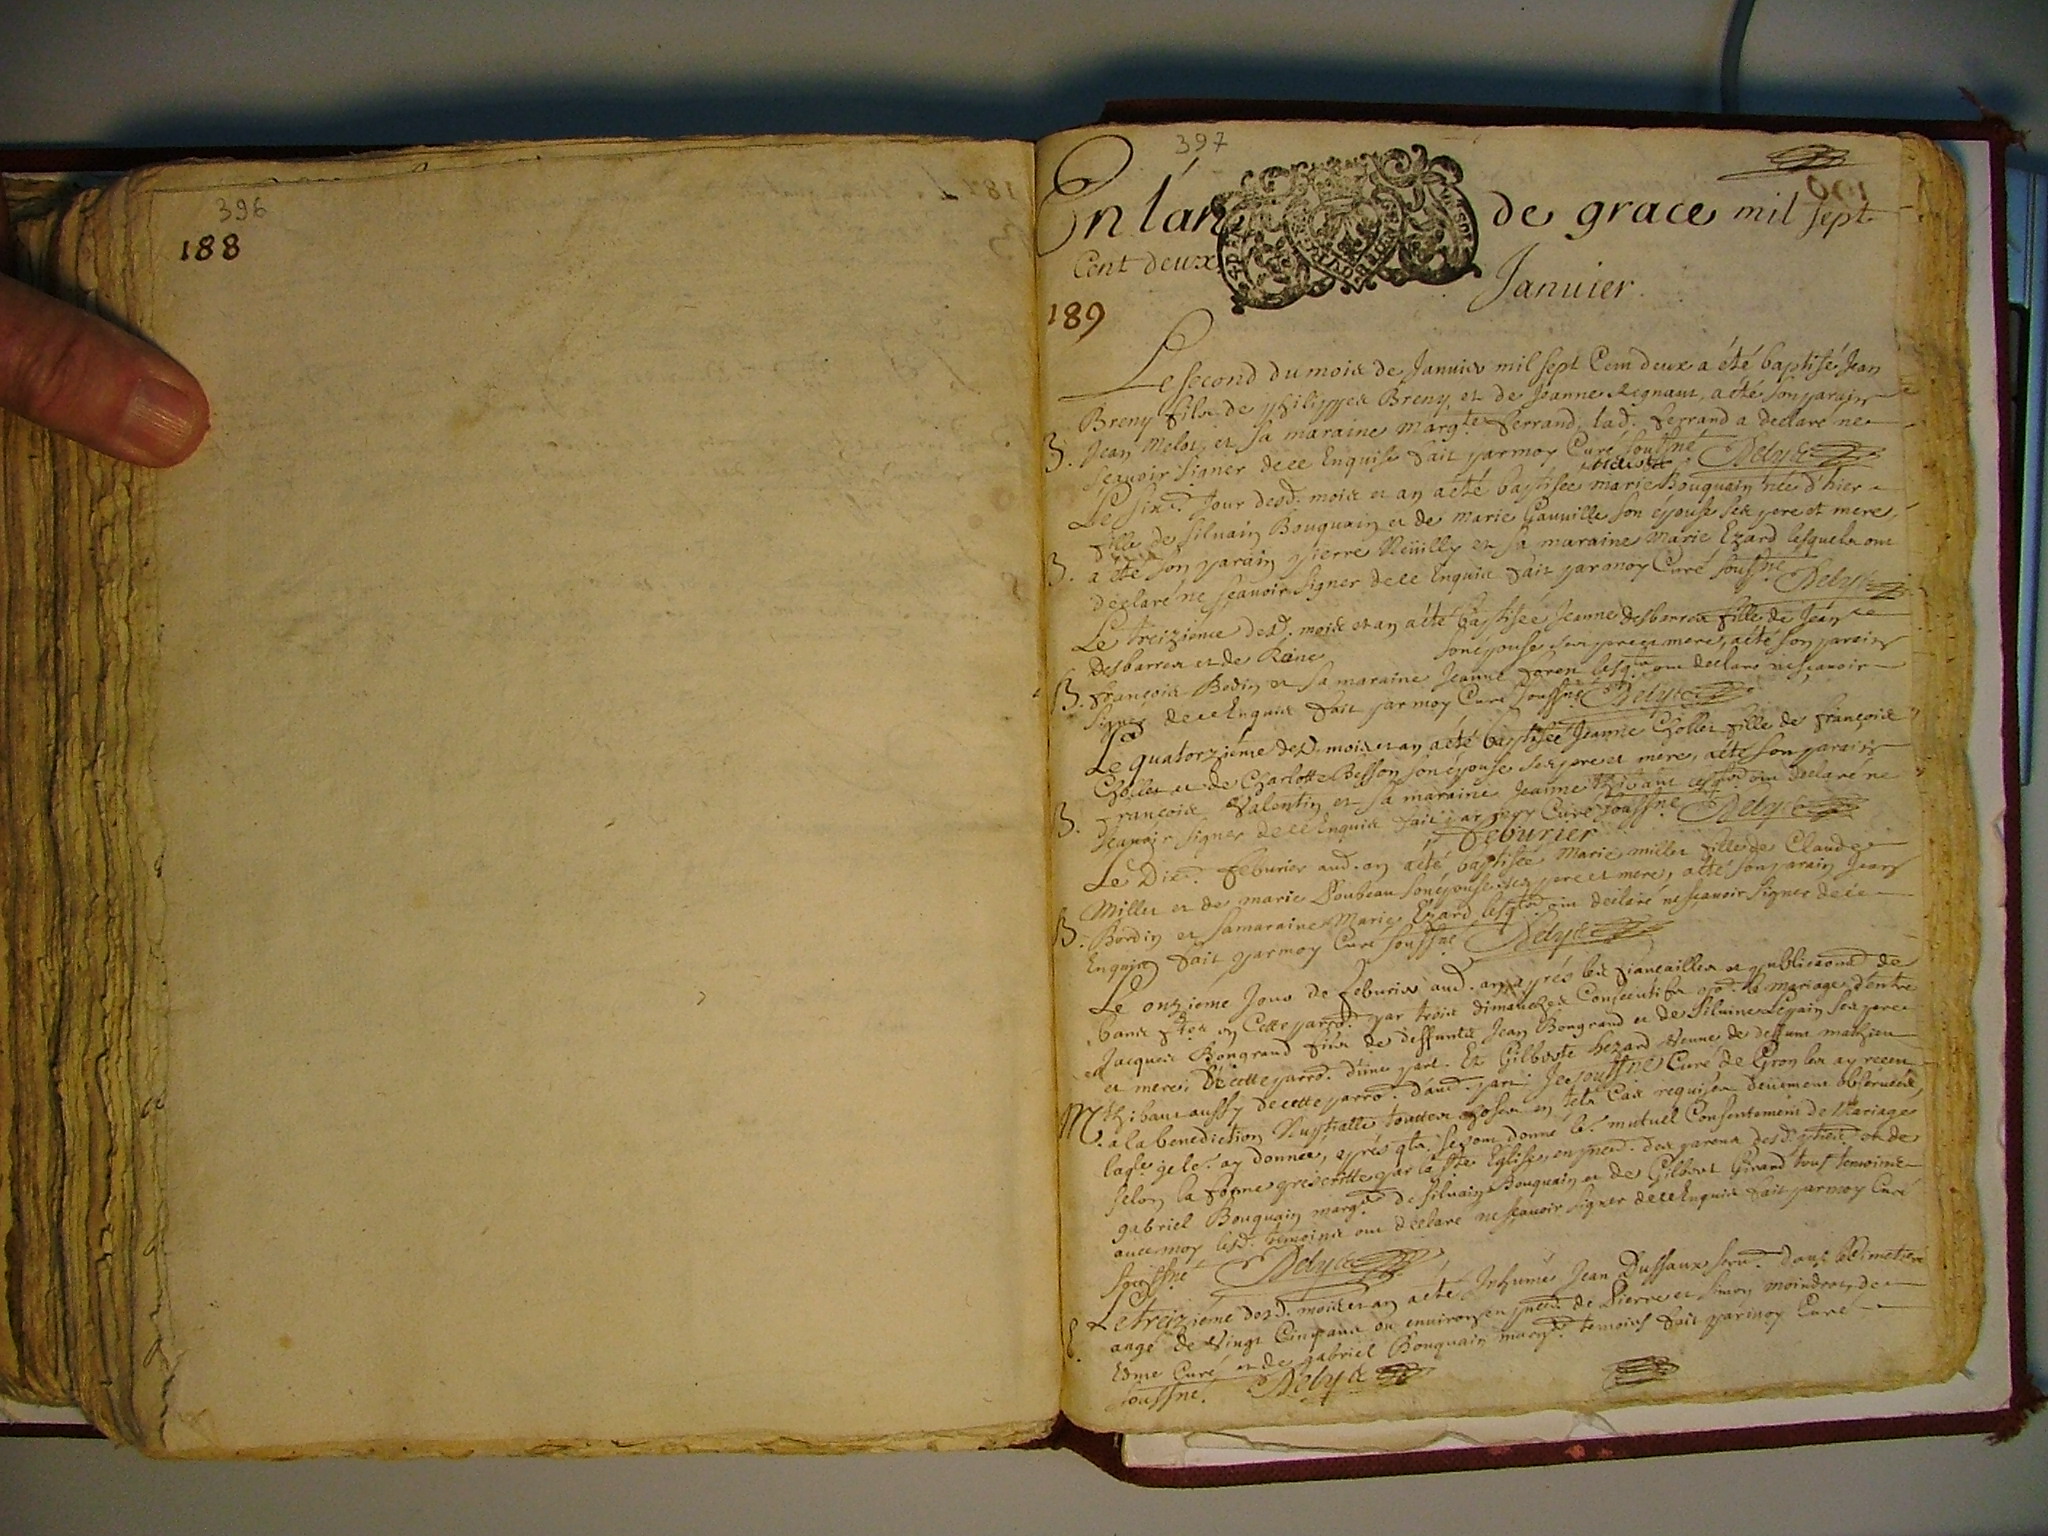 396
188
397
En l'an de grace mil sept
Cent deux
Januier
189
Le second du mois de Januier mil sept Cent deux a été baptisé Jean
Breny fils de philippes Breny et de Jeanne Regnaut, a été son parain
B. Jean Melot et sa maraine margte. ferrand, lad. ferrand a declaré ne
sçauoir signer de ce Enquise fait par moy Curé soussné Delys
Le sixe. Jour desd. mois et an a été baptisée marie Bouquain née d'hier
fille de siluain Bouquain et de marie Gauuille son épouse ses pere et mere,
B. a été son parain pierre Neüilly et sa maraine Marie Ezard lesquels ont
déclaré ne sçauoir signer de ce Enquis fait par moy Curé soussné Delys
Le treiziéme desd. mois et an a été baptisée Jeanne desbarres fille de Jean
desbarres et de Reine son épouse ses pere et mere, a été son parain
B. françois Bodin et sa maraine Jeanne lesqls. ont declaré ne sçauoir
signer de ce Enquis fait par moy Curé soussné Delys
Le quatorziéme desd. mois et an a été baptisée Jeanne Chollet fille de françois
Chollet et de Charlotte Besson son épouse ses pere et mere, a été son parain
B. françois Valentin et sa maraine Jeanne lesqls. ont declaré ne
sçauoir signer de ce Enquis fait par moy Curé soussné Delys
feburier
Le Dixe. feburier aud. an a été baptisée Marie millet fille de Claude
Millet et de marie Loubeau son épouse ses pere et mere, a été son parain Jean
B. Bordin et sa maraine Marie Ezard lesqls. ont declaré ne sçauoir signer de ce
Enquis fait par moy Curé soussné Delys
Le onziéme Jour de feburier aud. an aprés les fiançailles et publicaons. de
bans ftes en Cette parrd. par trois dimanches Consecutifs le mariage d'entre
Jacques Bongrand fils de deffunts Jean Bongrand et de Siluine ses pere
et mere, de cette parrd. d'une part Et Gilberte hezard veuue de deffunt mathieu
M. thibaut aussy de cette parrd. d'aud. part Je soussné Curé de Gron les ay receu
a la benediction Nuptialle touttes choses en tels Cas requises deuëment obseruées
laqle. je le. ay donnée, aprés qls. se sont donné le. mutuel Consentement de Mariage
selon la forme prescritte par la Ste Eglise, en pnce. des parens desd. et de
gabriel Bouquain de siluain Bouquain et de Gilbert Girand tous temoins
auec moy lesd. temoins ont declaré ne sçauoir signer de ce Enquis fait par moy Curé
soussné Delys
Le treiziéme desd. mois et an a été Inhumé Jean Dussaux dans le Cimetiere
E. aagé de Vingt Cinq ans ou enuiron en pnce. de Pierre et Simon moindrot, de
Edme Curé et de gabriel Bouquain temoins fait par moy Curé
soussné. Delys